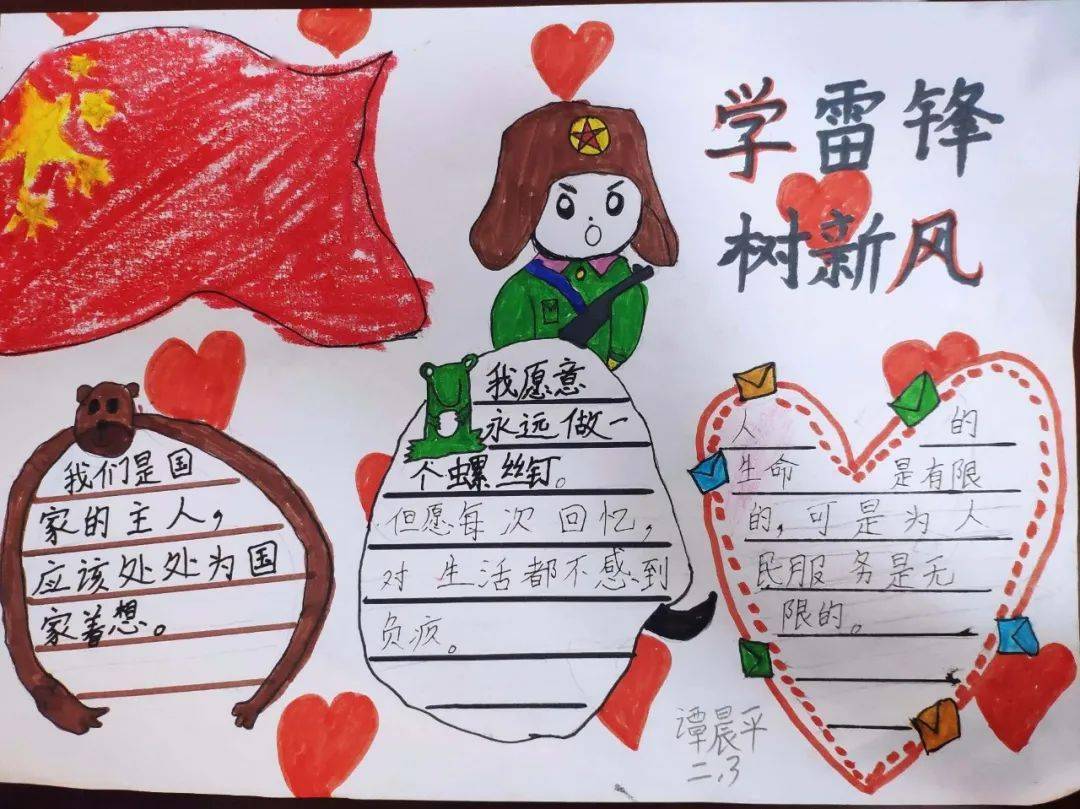 学雷锋
树新风
我们是国
家的主人，
应该处处为国
家着想。
我愿意
永远做一
个螺丝钉。
但愿每次回忆，
对生活都不感到
负疚。
人的
生命是有限
的，可是为人
民服务是无
限的。
谭晨平
二.3